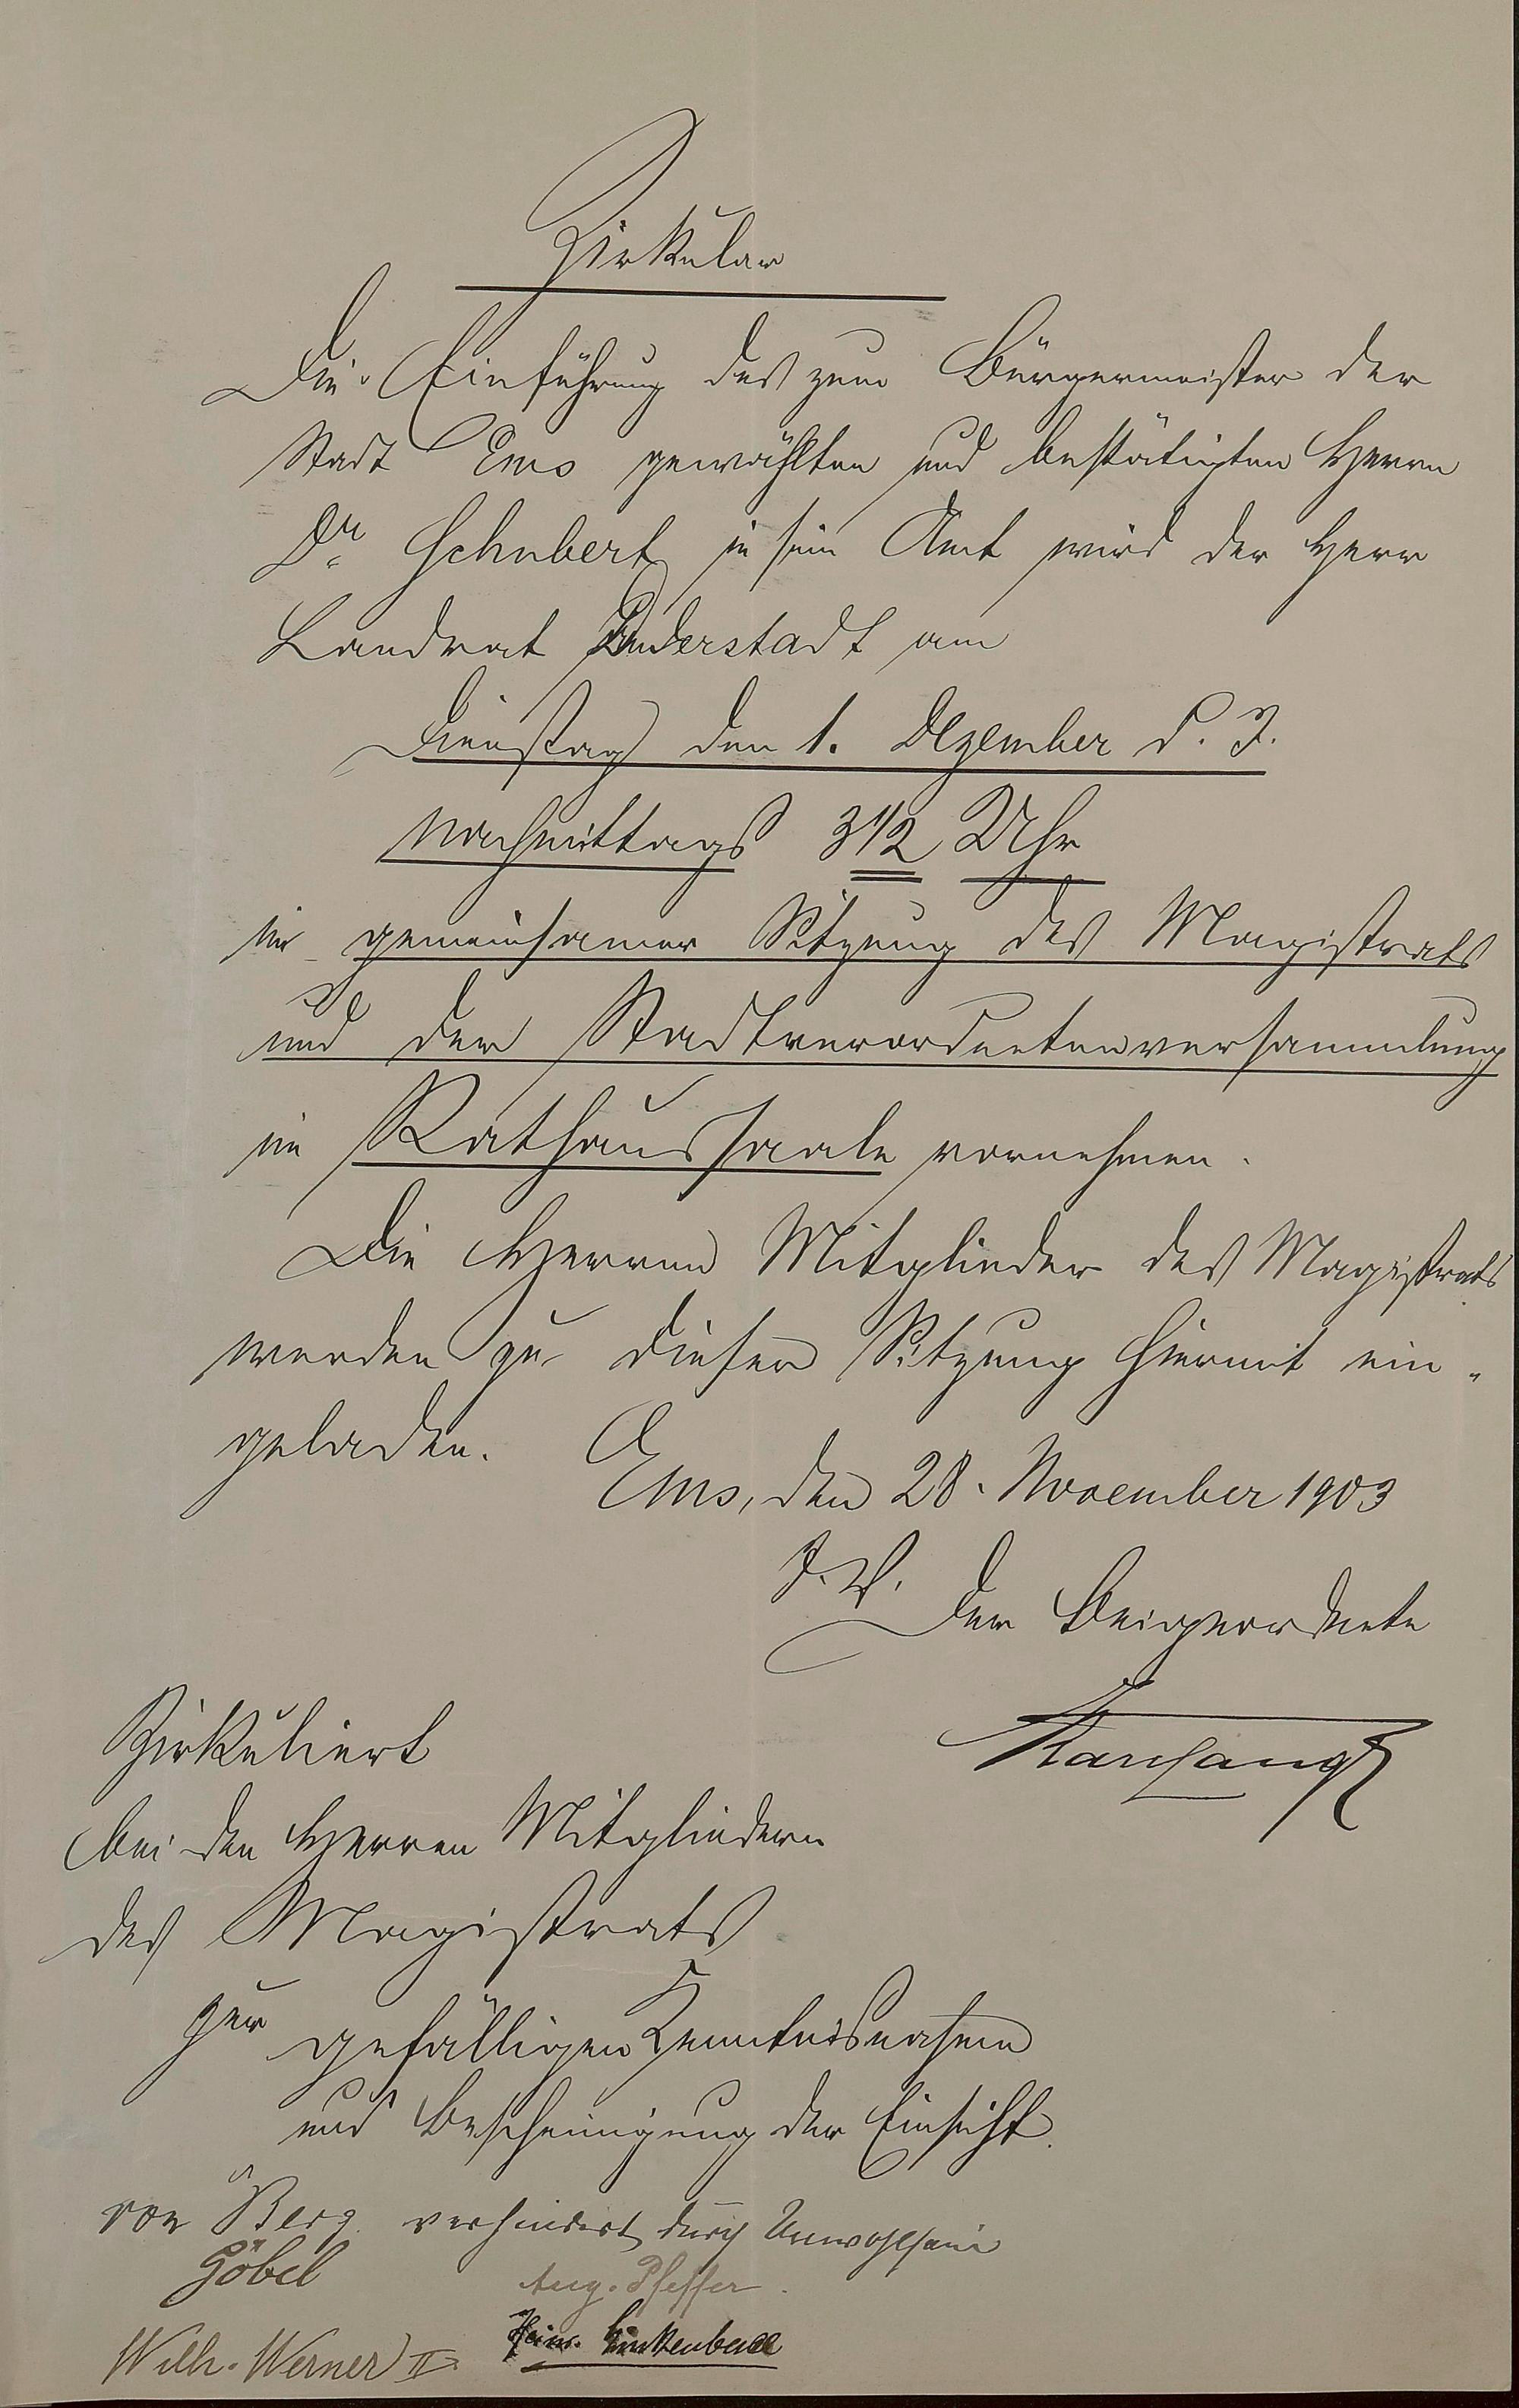 Zirkular
Die Einführung des zum Bürgermeister der
Stadt Ems gewählten und bestätigten Herrn
Dr. Schubert in sein Amt wird der Herr
Landrat Duderstadt am
Dienstag den 1. Dezember d. J.
Nachmittags 3 1/2 Uhr
in gemeinsamer Sitzung des Magistrats
und der Stadtverordnetenversammlung
im Rathaussaale vornehmen.
Die Herren Mitglieder des Magistrats
werden zu dieser Sitzung hiermit ein-
geladen.
Ems, den 28. November 1903
J. V.
Der Beigeordnete
Zirkuliert
bei den Herren Mitgliedern
des Magistrats
zur gefälligen Kenntnisnahme
und Bescheinigung der Einsicht.
von Berg. verhindert durch Unwohlsein
Göbel
Aug. Pfeffer.
Wilh. Werner II
Heinr. Linkenbach